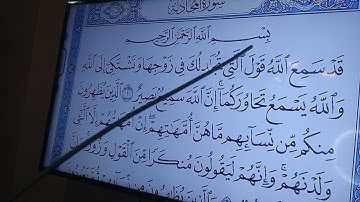 سُورَةُ المُجَادلَةِ
بِسْمِ اللَّهِ الرَّحْمَٰنِ الرَّحِيمِ
قَدْ سَمِعَ اللَّهُ قَوْلَ الَّتِي تُجَادِلُكَ فِي زَوْجِهَا وَتَشْتَكِي إِلَى اللَّهِ
وَاللَّهُ يَسْمَعُ تَحَاوُرَكُمَا إِنَّ اللَّهَ سَمِيعٌ بَصِيرٌ ١ الَّذِينَ يُظَاهِرُونَ
مِنكُم مِّن نِّسَائِهِم مَّا هُنَّ أُمَّهَاتِهِمْ إِنْ أُمَّهَاتُهُمْ إِلَّا الَّتِي
وَلَدْنَهُمْ وَإِنَّهُمْ لَيَقُولُونَ مُنكَرًا مِّنَ الْقَوْلِ وَزُورًا وَإِنَّ
وَالَّذِينَ يُظَاهِرُونَ